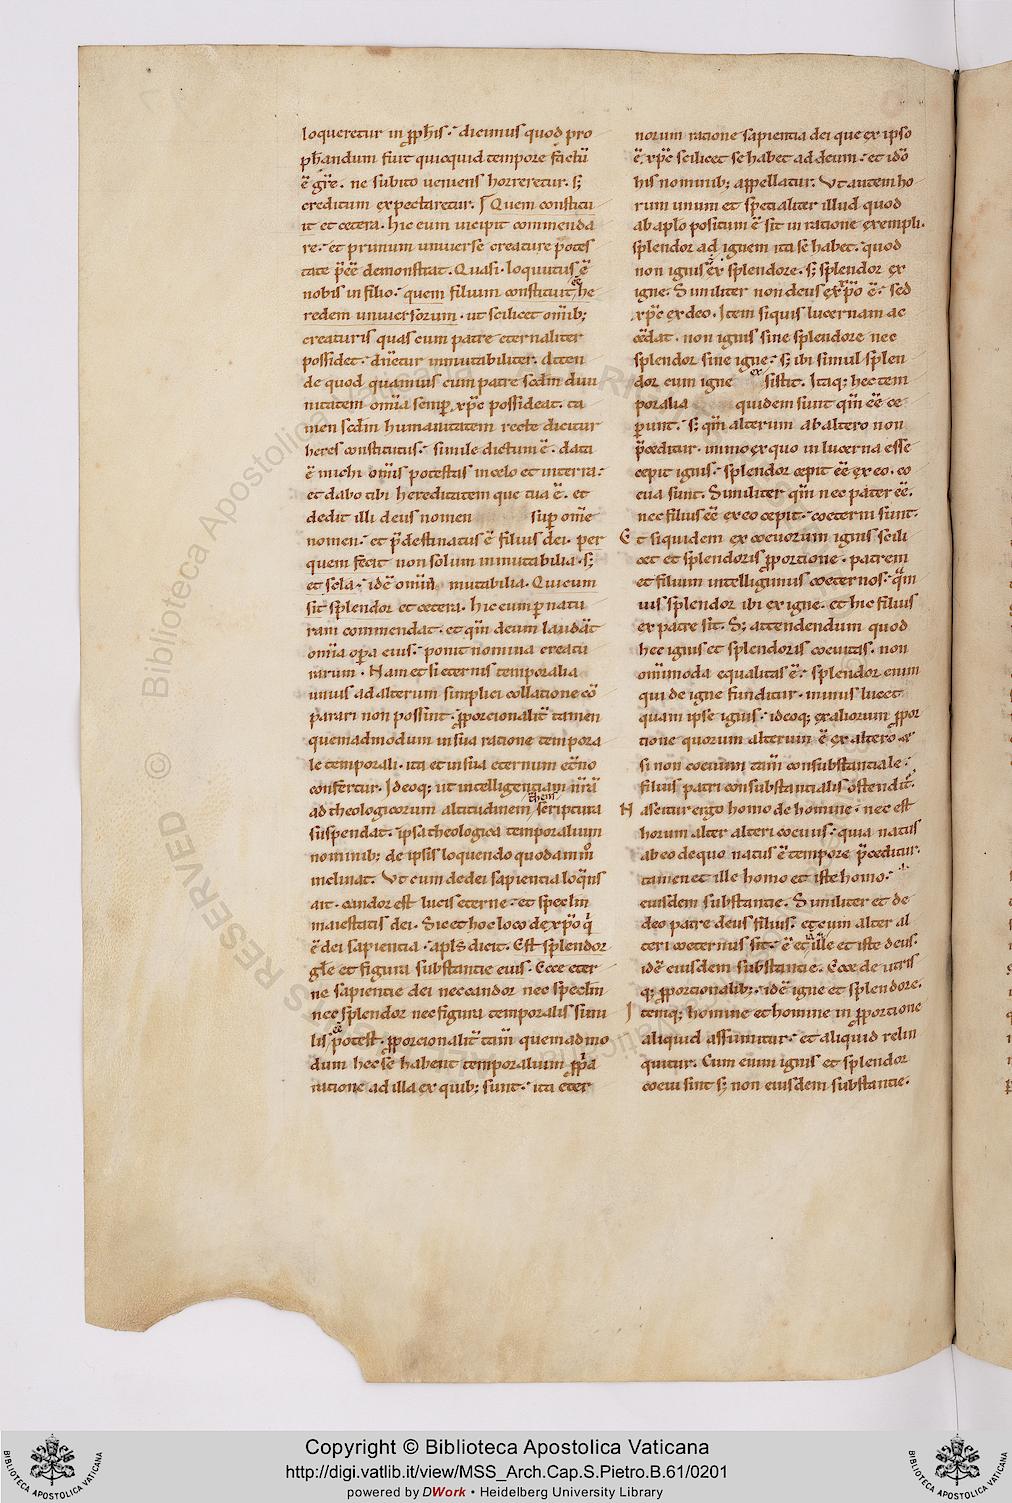 loqueretur in ꝓph̄is. dicimus quod pro
ph̄andum fuit quicquid tempore factū
ē gr̄e. ne subito ueniens horreretur. s;
creditum expectaretur. Quem constitu
it et cetera. hic eum incipit commenda
re. et primum uniuerse creature p̄otes
tate p̄ēē demonstrat. Quasi. loquutus ē
nobis in filio. quem filium constituit he
redem uniuersorum. ut scilicet om̄ib;
creaturis quas cum patre eternaliter
possidet. dn̄etur inmutabiliter. Atten
de quod quamuis cum patre scd̄m diui
nitatem om̄ia semꝑ xp̄c possideat. ta
men scd̄m humanitatem recte dicitur
heres constitutus. simile dictum ē. data
ē michi om̄is potestas in celo et in terra.
et dabo tibi hereditatem que tua ē. et
dedit illi deus nomen sup om̄e
nomen. et p̄destinatus ē filius dei. per
quem fecit non solum inmutabilia. s;
et sela. idē om̄ia mutabilia. Qui cum
sit splendor et cetera. hic eum ꝑ natu
ram commendat. et qm̄ deum laudāt
om̄ia oꝑa eius. ponit nomina creatu
rarum. Nam etsi eternis temporalia
unius ad alterum simplici collatione cō
parari non possint. ꝓporcionalit̄ tamen
quemadmodum in sua ratione tempora
le temporali. ita et in sua eternum et̄no
confertur. Ideoq; ut intelligentiam nr̄ā
ad theologicorum altitudinem scriptura
suspendat. ipsa theologica temporalium
nominib; de ipsis loquendo quodammo
inclinat. Ut cum de dei sapientia loq̄ns
ait. candor est lucis eterne. et speclm̄
maiestatis dei. Sic et hoc loco de xp̄o q̄
ē dei sapientia. apl̄s dicit. Est splendor
gl̄e et figura substantie eius. Ecce eter
ne sapientie dei nec candor nec speclm̄
nec splendor nec figura temporalis simi
lis ēē potest. ꝓporcionalit̄ tam̄ quemadmo
dum hec se habent temporalium ꝓp̄a
ratione ad illa ex quib; sunt. ita eter
norum ratione sapientia dei que ex ipso
ē. xp̄c scilicet se habet ad deum. et idō
his nominib; appellatur. Ut autem ho
rum unum et specialiter illud quod
ab aplo positum ē sit in ratione exempli.
splendor ad ignem ita se habet. quod
non ignis ēx splendore. s; splendor ex
igne. Similiter non deus ex xp̄o ē. sed
xp̄c ex deo. Item siquis lucernam ac
cēdat. non ignis sine splendore nec
splendor sine igne. s; ibi simul splen
dor cum igne exsistit. Itaq; hec tem
poralia quidem sunt qm̄ ēē ce
ꝑunt. s; qm̄ alterum ab altero non
p̄ceditur. immo ex quo in lucerna esse
cepit ignis. splendor cepit ēē ex eo. co
eua sunt. Similiter qm̄ nec pater ēē.
nec filius ēē ex eo cepit. coeterni sunt.
Et siquidem ex coeuorum ignis scili
cet et splendoris ꝓportione. patrem
et filium intelligimus coeternos. qm̄
uis splendor ibi ex igne. et hic filius
ex patre sit. S; attendendum quod
hec ignis et splendoris coeuitas. non
om̄imoda equalitas ē. splendor enim
qui de igne funditur. minus lucet
quam ipse ignis. ideoq; ex aliorum ꝓpor
tione quorum alterum ē ex altero &
si non coeuum tam̄ consubstantiale.
filius patri consubstantialis ostendit̄.
Nascitur ergo homo de homine. nec est
horum alter alteri coeuus. quia natus
ab eo de quo natus ē tempore p̄ceditur.
tamen et ille homo et iste homo.
eiusdem substantie. Similiter et de
deo patre deus filius. et cum alter al
teri coeternus sit. ē et ille et iste deus.
idē eiusdem substantie. Ecce de utris
q; ꝓportionalib;. idē igne et splendore.
Itemq; homine et homine in ꝓportione
aliquid assumitur. et aliquid relin
quitur. Cum enim ignis et splendor
coeui sint s; non eiusdem substantie.
Copyright © Biblioteca Apostolica Vaticana
http://digi.vatlib.it/view/MSS_Arch.Cap.S.Pietro.B.61/0201
powered by DWork • Heidelberg University Library
BIBLIOTECA APOSTOLICA VATICANA
BIBLIOTECA APOSTOLICA VATICANA